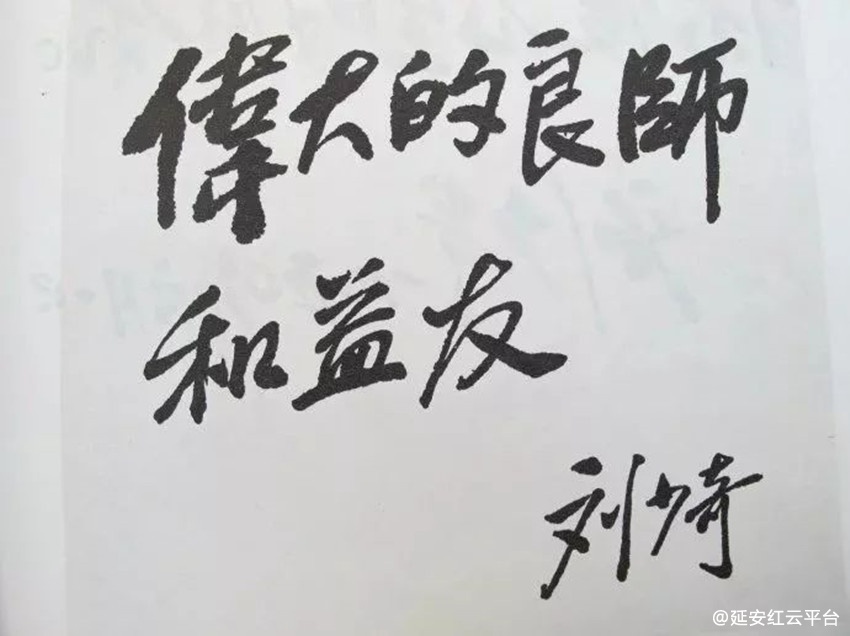 偉大的良師
和益友
刘少奇
@延安红云平台